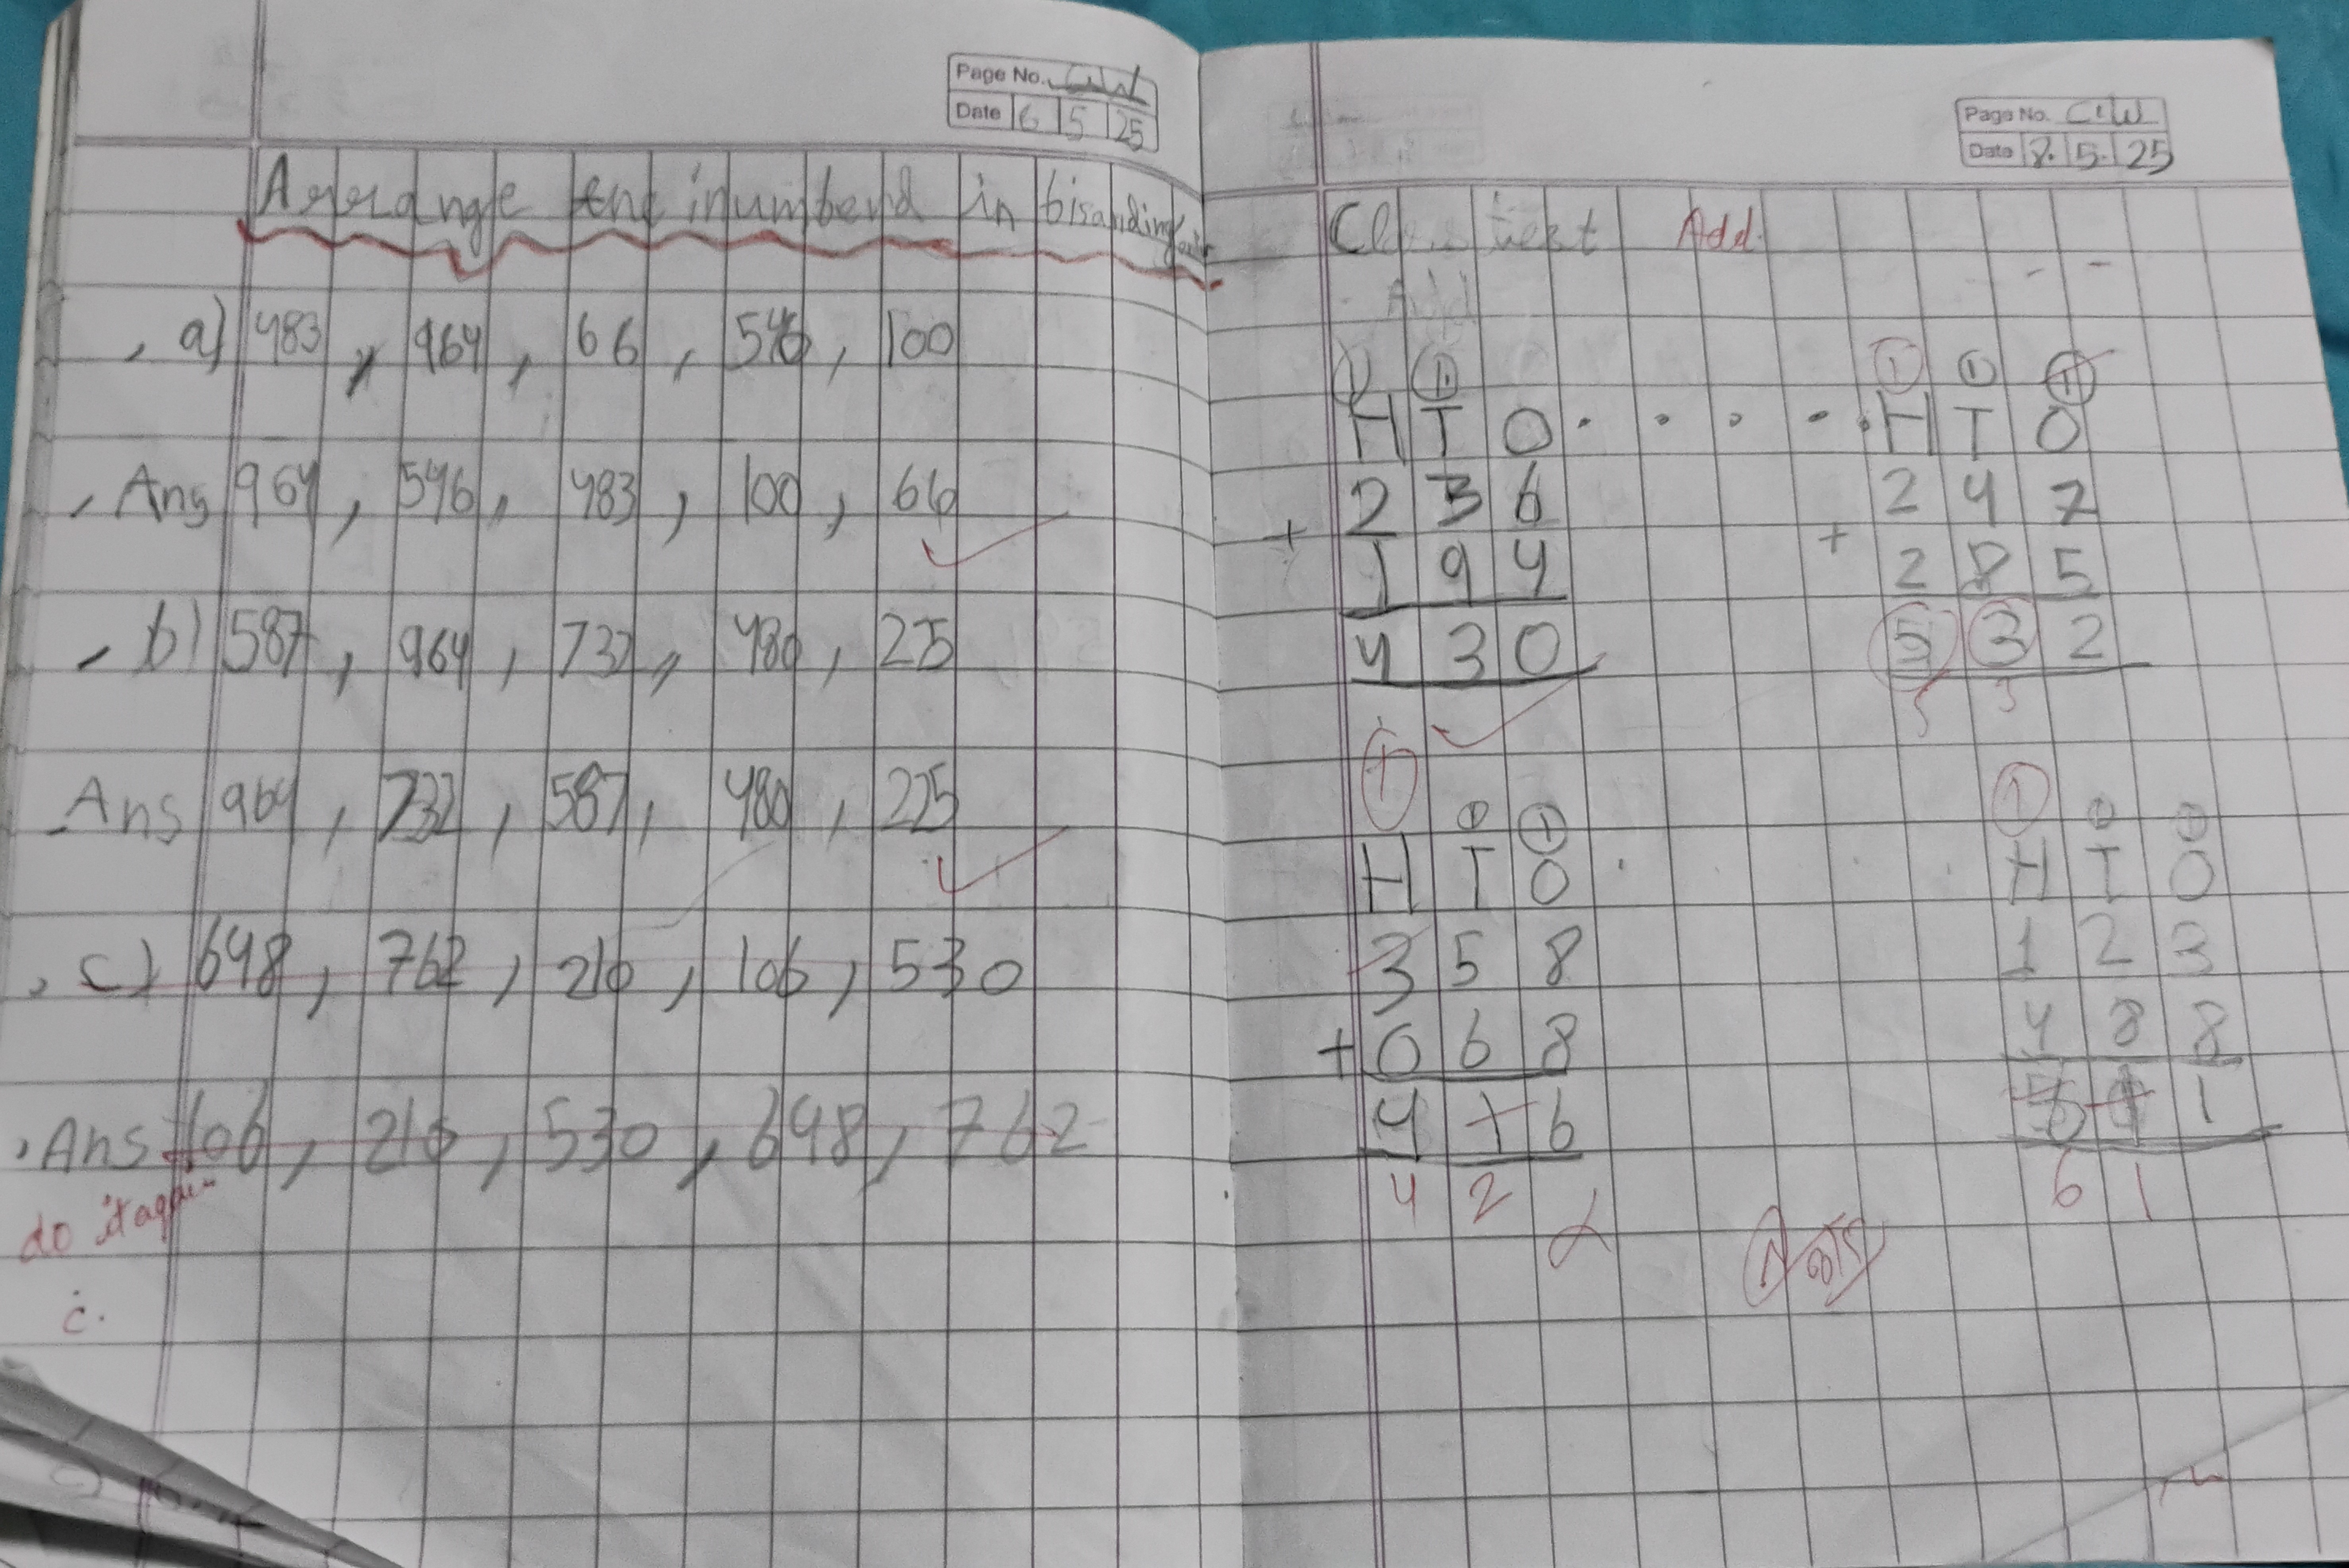 Page No. C.W
Date 6 5 25
Arrange the inumberd in
a) 483, 964, 66, 546, 100
Ans 964, 546, 483, 100, 66
b) 587, 964, 732, 480, 225
Ans 964, 732, 587, 480, 225
c) 648, 762, 210, 106, 530
Ans 106, 210, 530, 648, 762
do it again
c.
Page No. C.W
Date 8. 5. 25
Class test Add
Add
1 1
H T O
2 3 6
+ 1 9 4
4 3 0
1 1 1
H T O
2 4 7
+ 2 8 5
5 3 2
5 3
1 1 1
H T O
3 5 8
+ 0 6 8
4 1 6
4 2
1 1 1
H T O
1 2 3
4 8 8
5 1 1
6 1